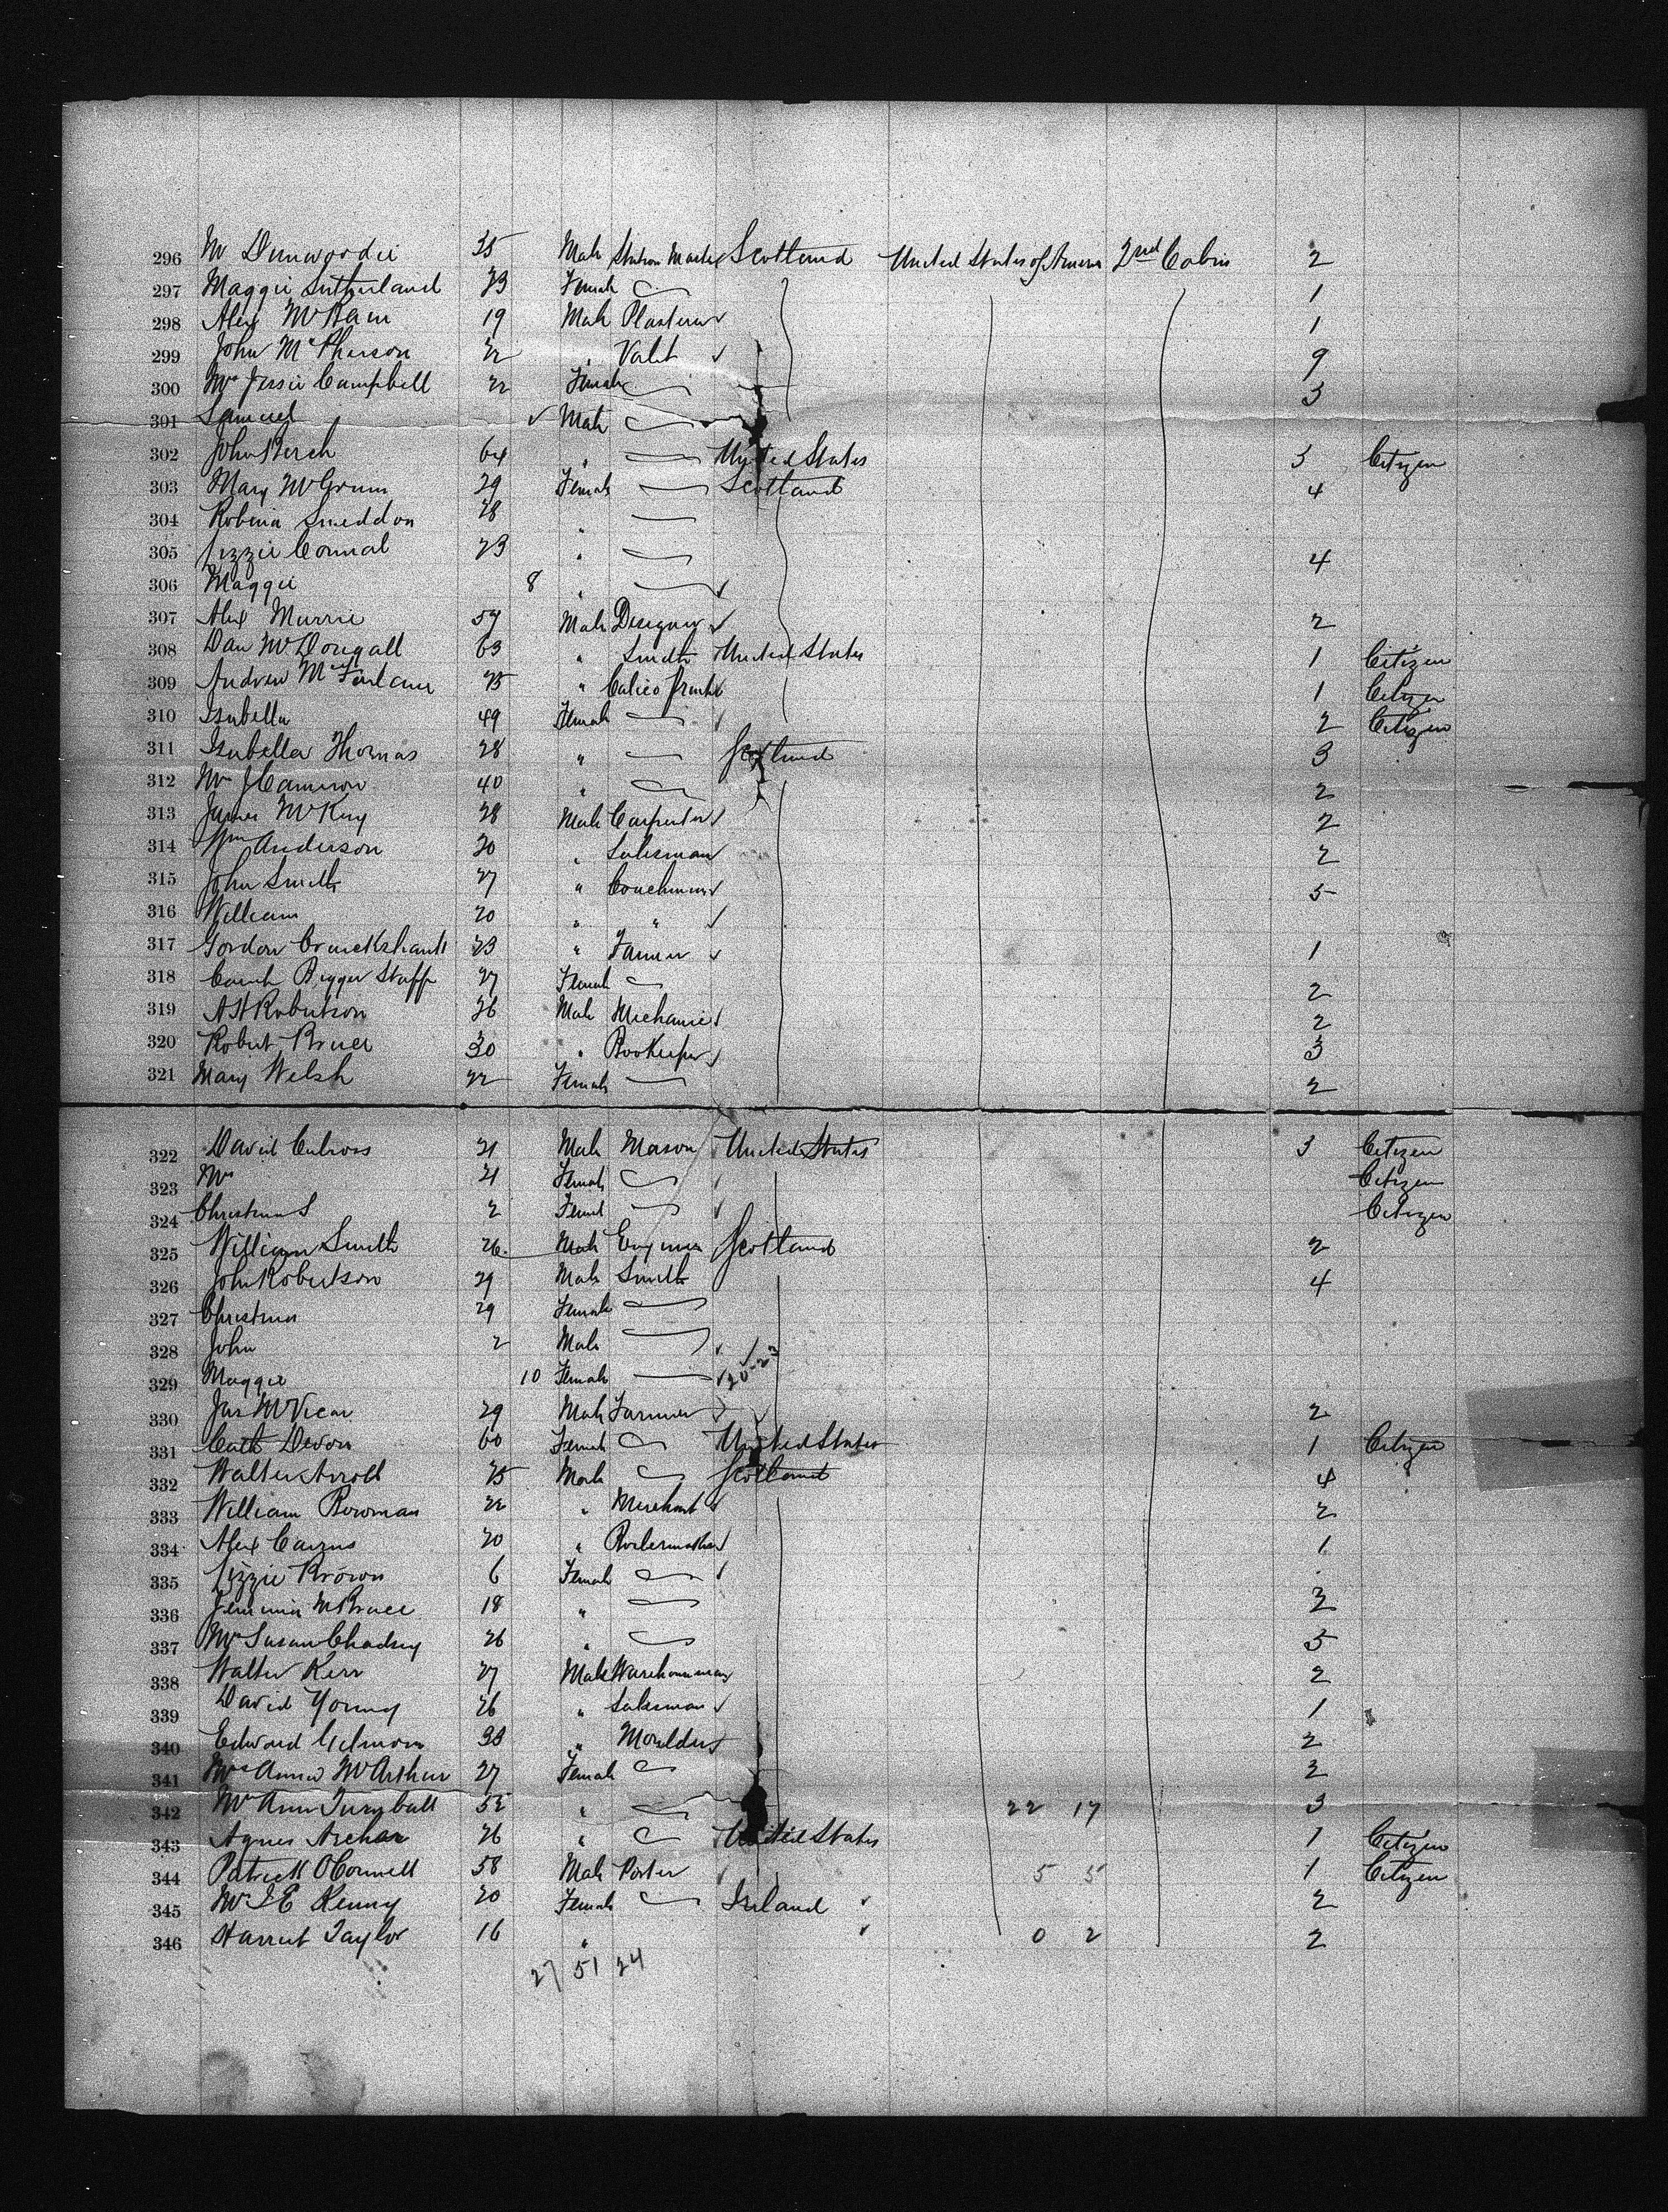 296 W Dunwoodie 35 Male Station Master Scotland United States of America 2nd Cabin 2
297 Maggie Sutherland 23 Female 1
298 Alex 19 Male Plasterer 1
299 John McPherson 22 " Valet 9
300 Mrs Jessie Campbell 22 Female 3
301 Samuel Male
302 John 64 " United States 3 Citizen
303 Mary 29 Female Scotland 4
304 Robina Smeddon 28 "
305 Lizzie Connal 23 " 4
306 Maggie 8 "
307 Alex Murrie 57 Male Designer 2
308 Dan McDougall 63 " Smith United States 1 Citizen
309 Andrew McFarlane 45 " Calico Printer 1 Citizen
310 Isabella 49 Female 2 Citizen
311 Isabella Thomas 28 " Scotland 3
312 Mrs J Cameron 40 " 2
313 James McKay 28 Male Carpenter 2
314 Wm Anderson 20 " Salesman 2
315 John Smith 27 " Coachman 5
316 William 20 " "
317 Gordon Cruickshank 23 " Farmer 1
318 Bigger Staff 27 Female 2
319 A H Robertson 26 Male Mechanic 2
320 Robert Bruce 30 " Bookeeper 3
321 Mary Welsh 22 Female 2
322 David Culross 21 Male Mason United States 3 Citizen
323 Mrs 21 Female Citizen
324 Christina S 2 Female Citizen
325 William Smith 26 Male Engineer Scotland 2
326 John Robertson 29 Male Smith 4
327 Christina 29 Female
328 John 2 Male
329 Maggie 10 Female
330 Jas McVicar 29 Male Farmer 2
331 Cath Devon 60 Female United States 1 Citizen
332 Walter Arroll 45 Male Scotland 4
333 William Bowman 22 " Merchant 2
334 Alex Cairns 20 " Boilermaker 1
335 Lizzie Brown 6 Female
336 Jemima M Bruce 18 " 2
337 Mrs Susan Chadsey 26 " 5
338 Walter Kerr 27 Male Warehouseman 2
339 David Young 26 " Salesman 1
340 Edward 33 " Moulder 2
341 Mrs Annie McArthur 27 Female 2
342 Mrs Ann Turnbull 52 " 22 17 3
343 Agnes Archer 26 " United States 1 Citizen
344 Patrick O'Connell 58 Male Porter 5 5 1 Citizen
345 Mrs J E Kenny 20 Female Ireland 2
346 Harriet Taylor 16 " 0 2 2
27 51 24